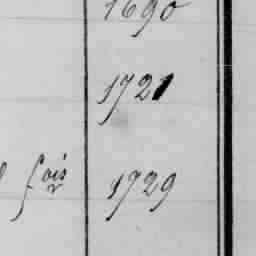 1690
1721
fois 1729